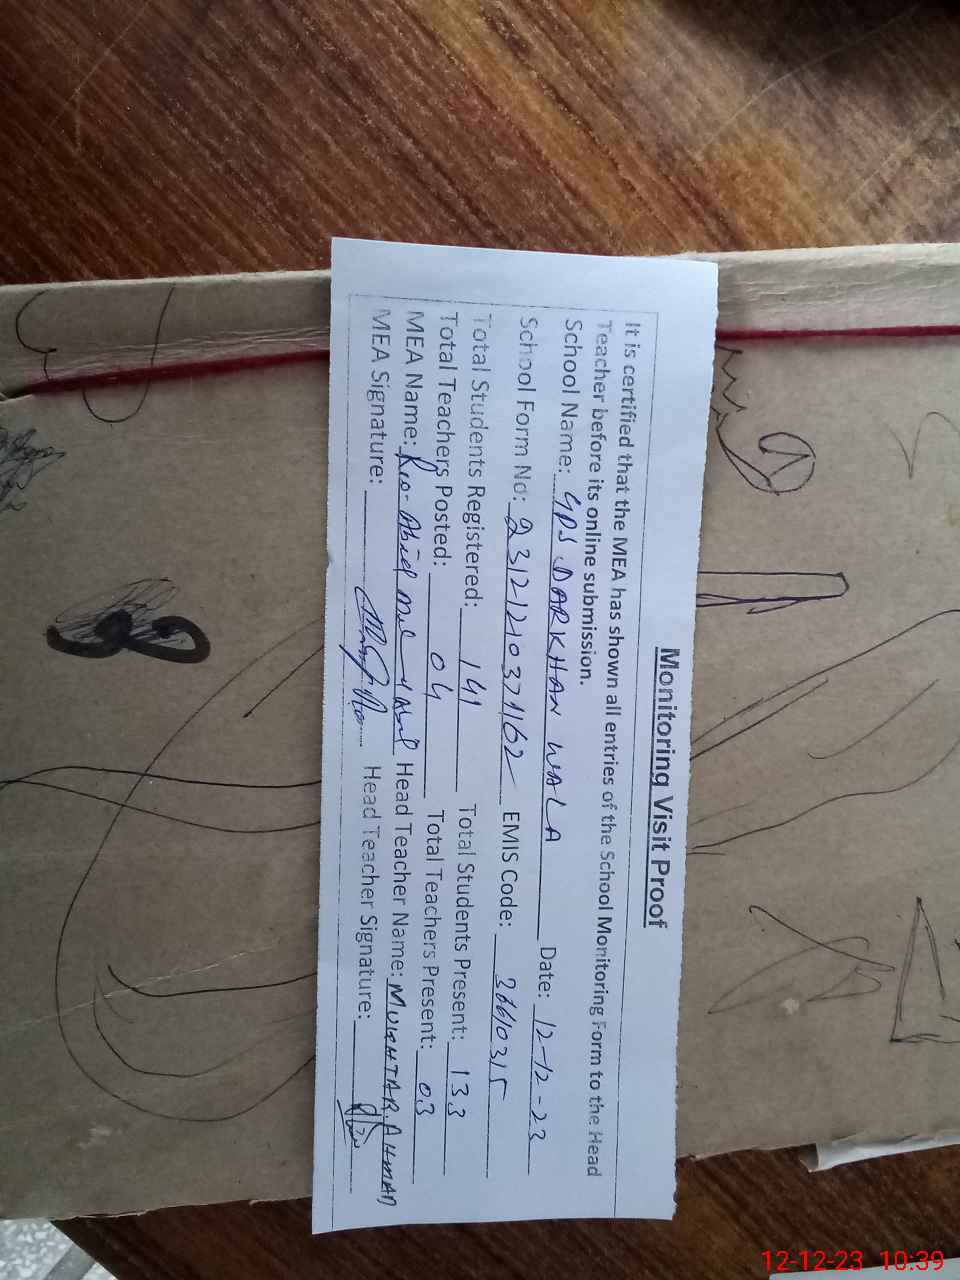 Monitoring Visit Proof
It is certified that the MEA has shown all entries of the School Monitoring Form to the Head
Teacher before its online submission.
School Name: GPS DARKHAN WALA Date: 12-12-23
School Form No: 23121210371162 EMIS Code: 36610315
Total Students Registered: 141 Total Students Present: 133
Total Teachers Posted: 04 Total Teachers Present: 03
MEA Name: Abid Head Teacher Name: MUSHTAR.AHMAD
MEA Signature: Head Teacher Signature:
12-12-23 10:39